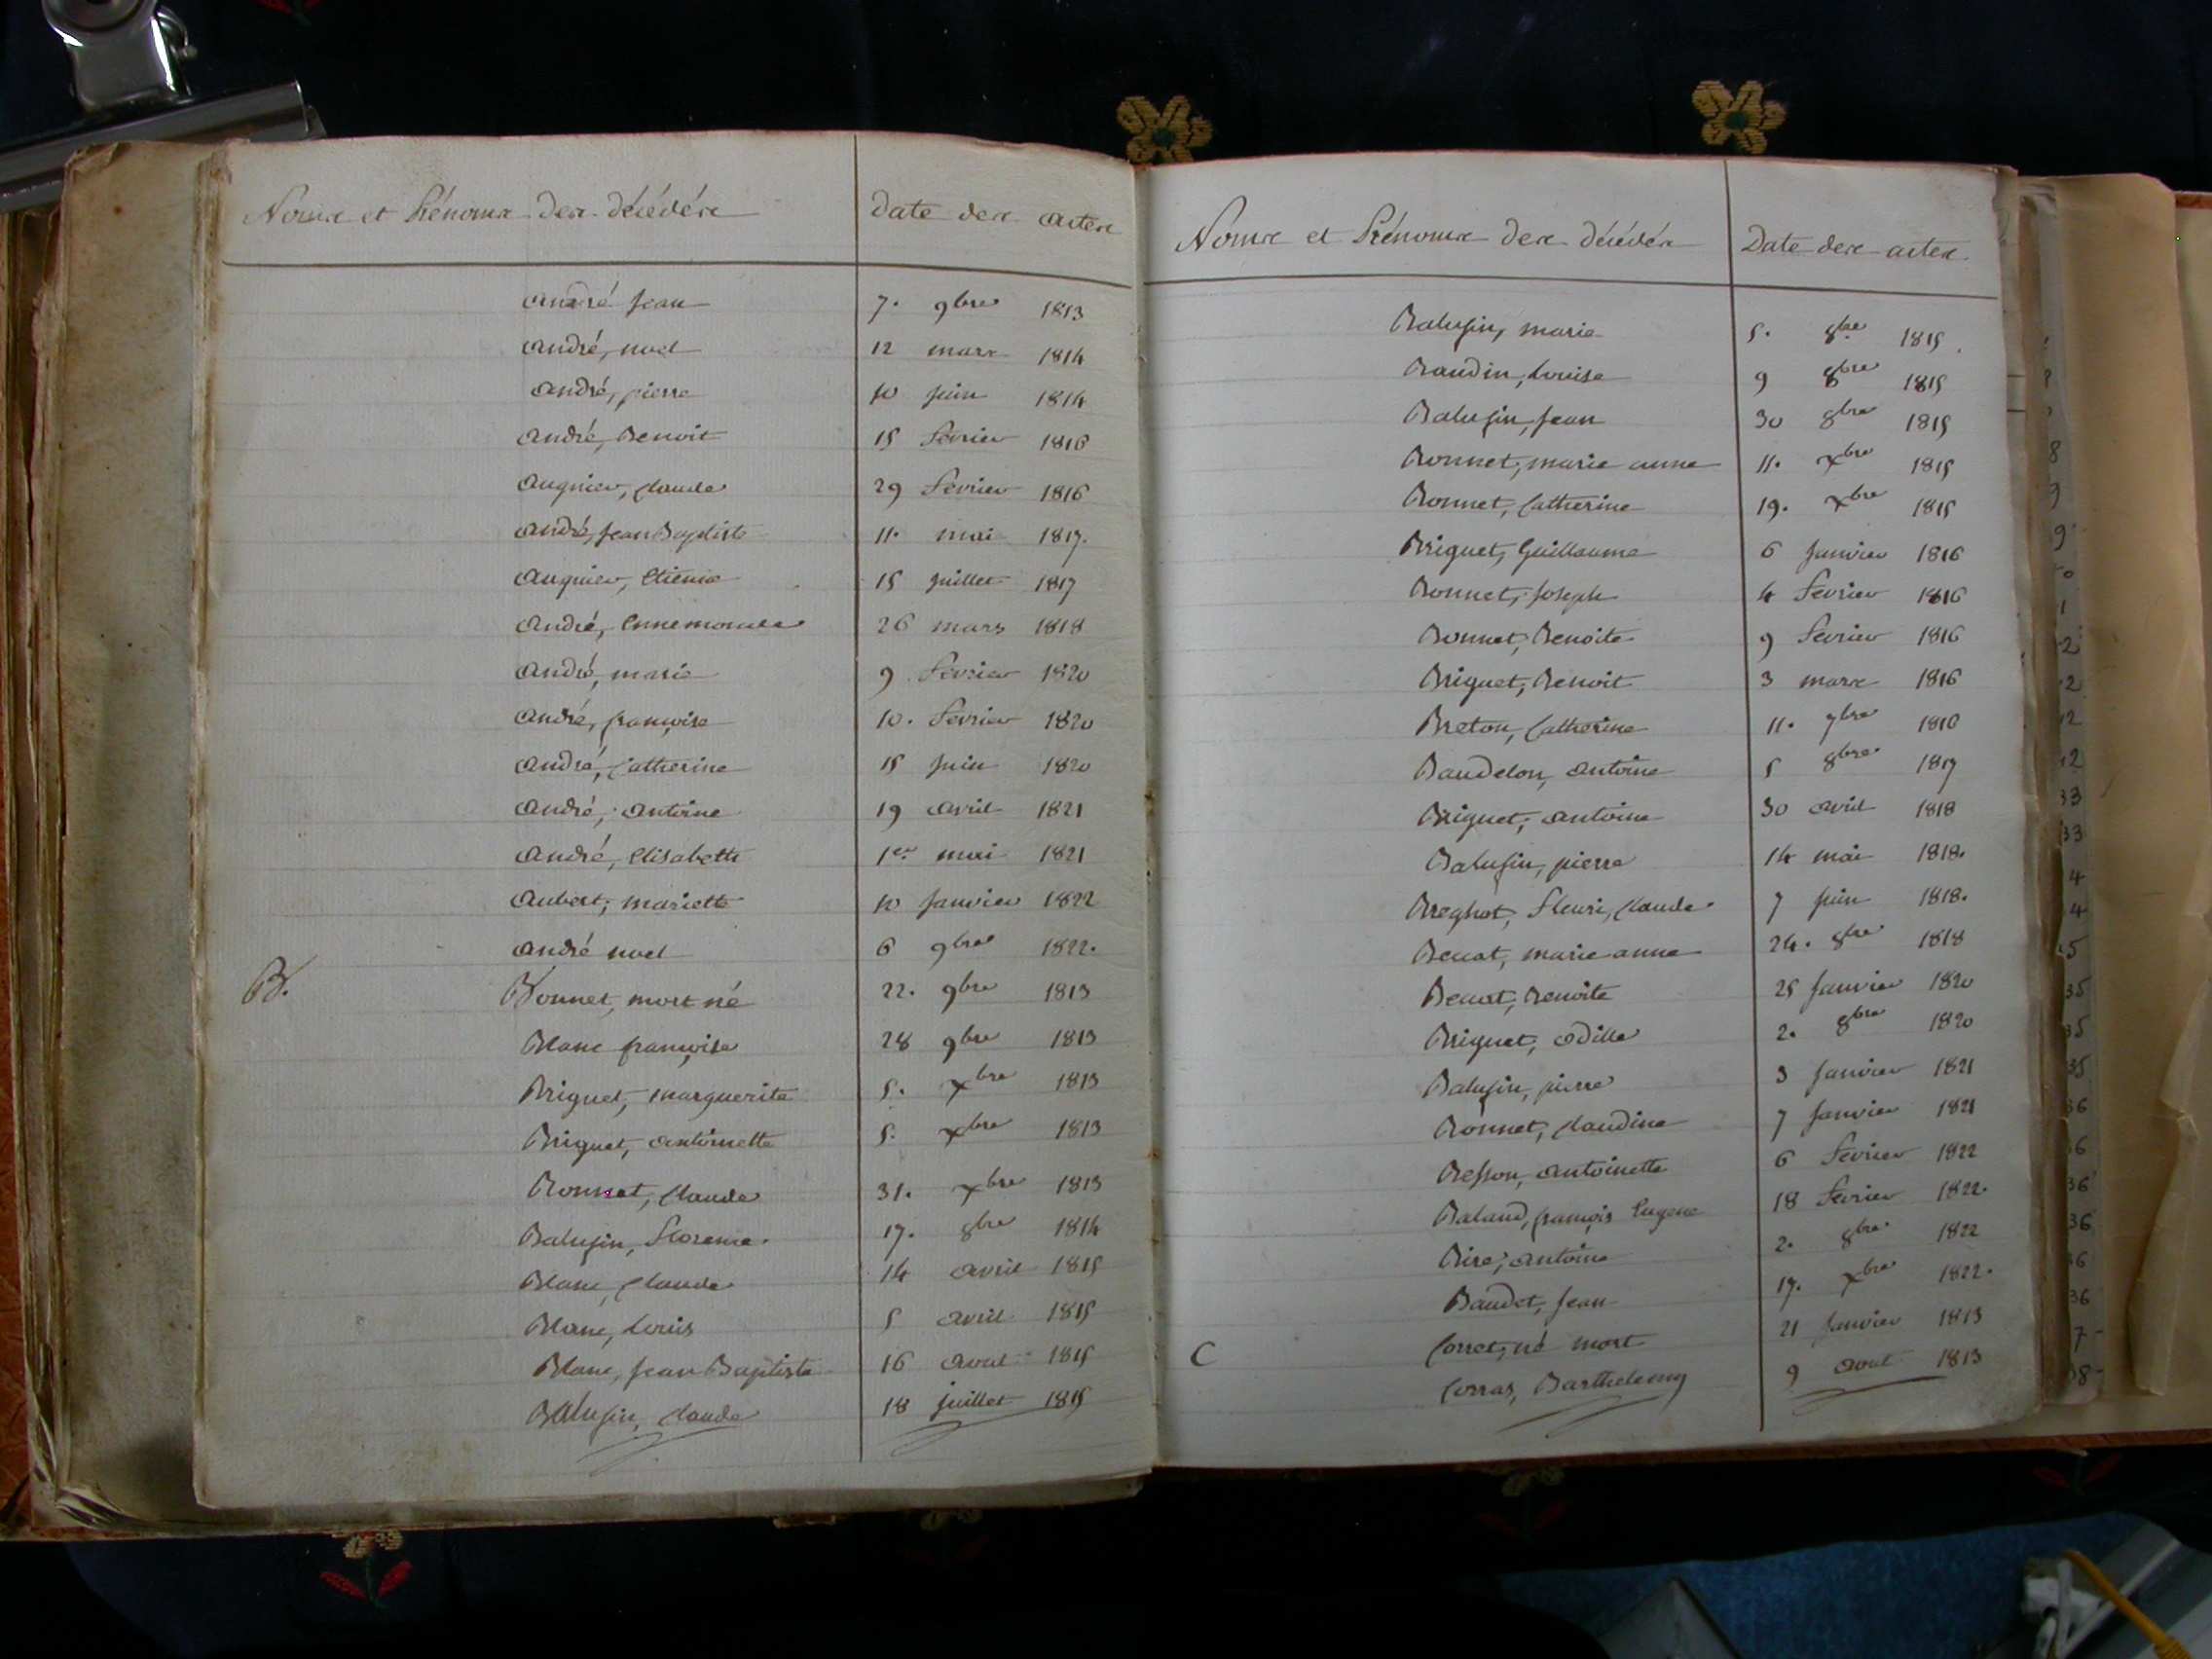 Noms et Prénoms des décédés Date des actes
André Jean 7. 9bre 1813
André, noel 12 mars 1814
André, pierre 10 juin 1814
André, Benoit 15 fevrier 1816
Augnier, Claude 29 fevrier 1816
André, Jean Baptiste 11. mai 1817.
Augnier, Etienne 15 juillet 1817
André, Ennemonde 26 mars 1818
André, marie 9 fevrier 1820
André, françoise 10. fevrier 1820
André, Catherine 15 juin 1820
André, antoine 19 avril 1821
André, Elisabeth 1er mai 1821
Aubert, mariette 10 Janvier 1822
André noel 6 9bre 1822.
B. Bonnet, mort né 22. 9bre 1813
Blanc françoise 28 9bre 1813
Briguet, marguerite 5. xbre 1813
Briguet, antoinette 5. xbre 1813
Bonnet, Claude 31. xbre 1813
Balufin, Florence. 17. 8bre 1814
Blanc, Claude 14 avril 1815
Blanc, Louis 5 avril 1815
Blanc, Jean Baptiste 16 aout 1815
Balufin, Claude 18 juillet 1815
Noms et Prénoms des décédés Date des actes
Balufin, marie 5. 8bre 1815
Baudin, Louise 9 8bre 1815
Balufin, Jean 30 8bre 1815
Bonnet, marie anne 11. xbre 1815
Bonnet, Catherine 19. xbre 1815
Briguet, Guillaume 6 Janvier 1816
Bonnet, Joseph 4 fevrier 1816
Bonnet, Benoite 9 fevrier 1816
Briguet, Benoit 3 mars 1816
Breton, Catherine 11. 7bre 1816
Baudelon, antoine 5 8bre 1817
Briguet, antoine 30 avril 1818
Balufin, pierre 14 mai 1818.
Breghot, Fleuri, Claude 7 juin 1818.
marie anne 24. 8bre 1818
Benoite 25 Janvier 1820
Briguet, odille 2. 8bre 1820
Balufin, pierre 3 Janvier 1821
Bonnet, Claudine 7 Janvier 1821
Besson, antoinette 6 fevrier 1822
Baland, françois Eugene 18 fevrier 1822.
antoine 2. 8bre 1822
Baudet, Jean 17. xbre 1822.
C Corret, né mort 21 Janvier 1813
Corras, Barthelemy 9 aout 1813